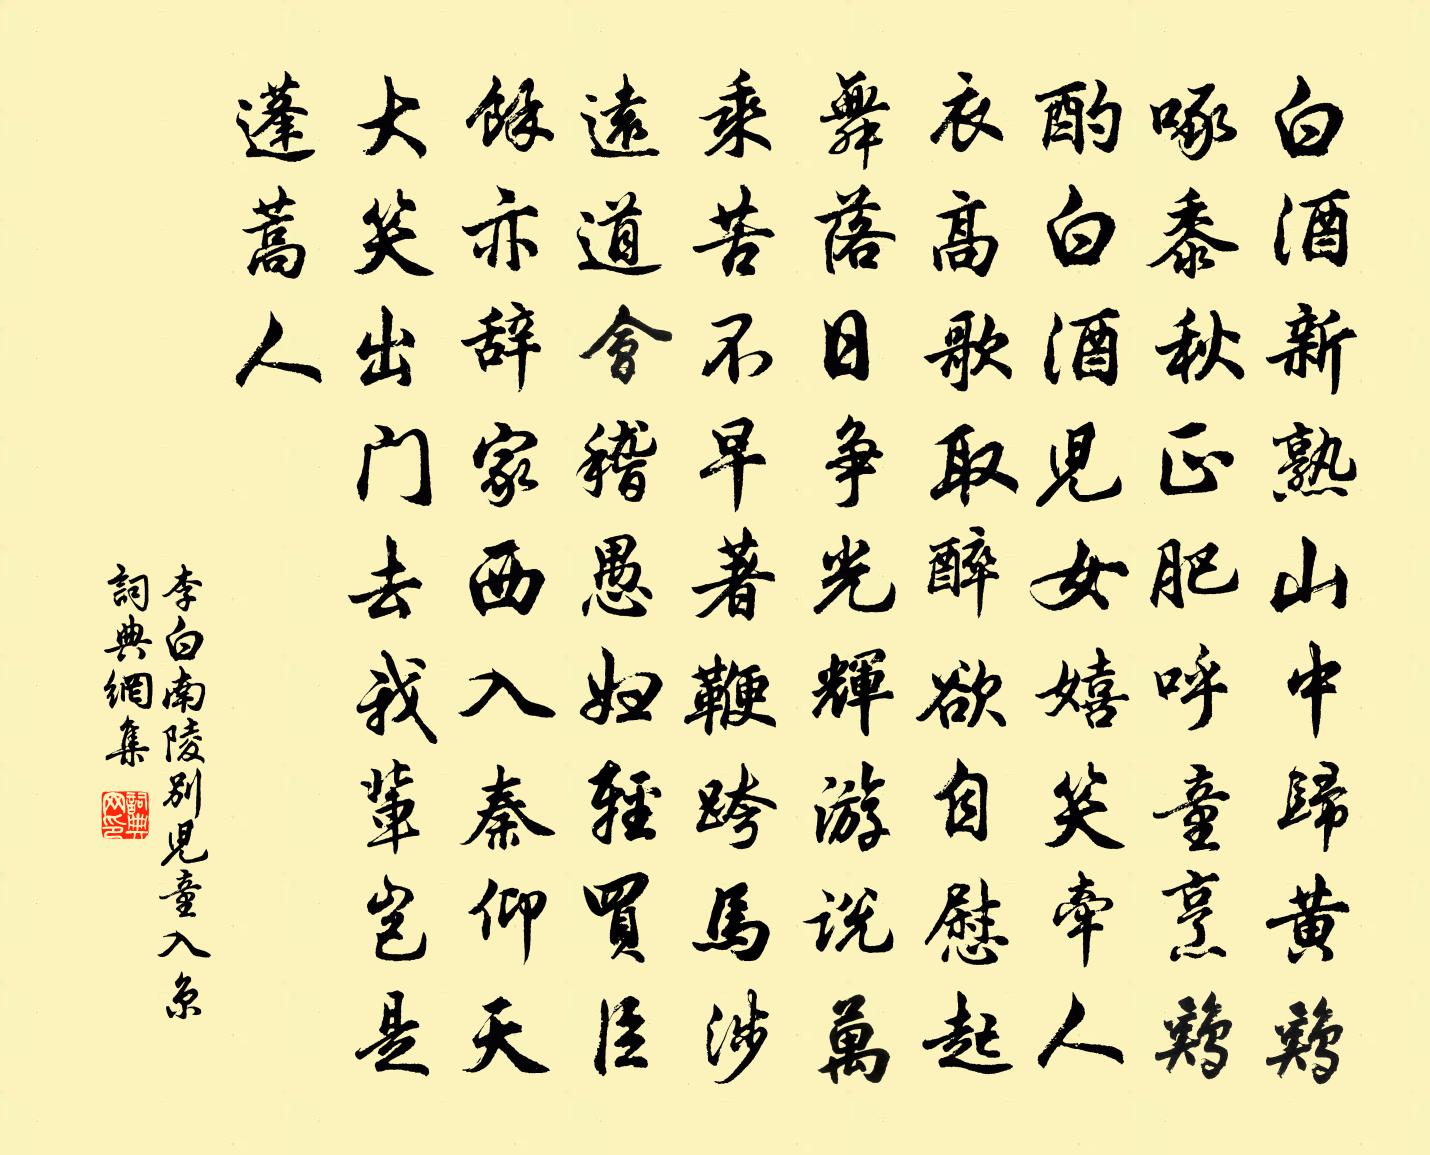 白酒新熟山中歸黃鷄
啄黍秋正肥呼童烹鷄
酌白酒兒女嬉笑牽人
衣高歌取醉欲自慰起
舞落日爭光輝游說萬
乘苦不早著鞭跨馬涉
遠道會稽愚婦輕買臣
餘亦辞家西入秦仰天
大笑出門去我輩豈是
蓬蒿人
李白南陵別兒童入京
詞典網集
詞典网印